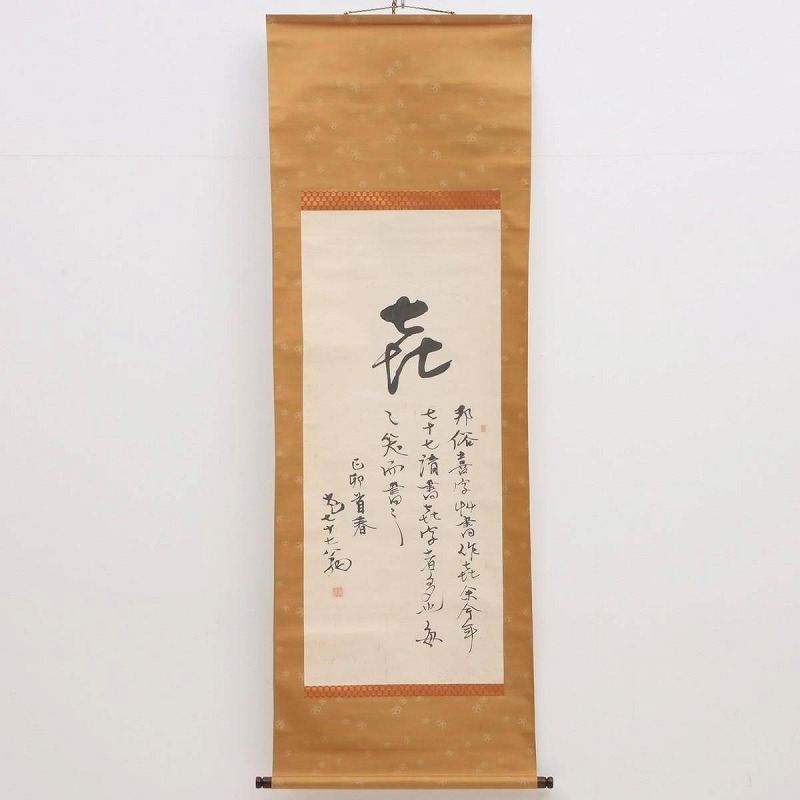 㐂
邦俗喜字艸書作㐂余今年
七十七請書㐂字者多也每
々笑而書之
己卯首春
七十七翁